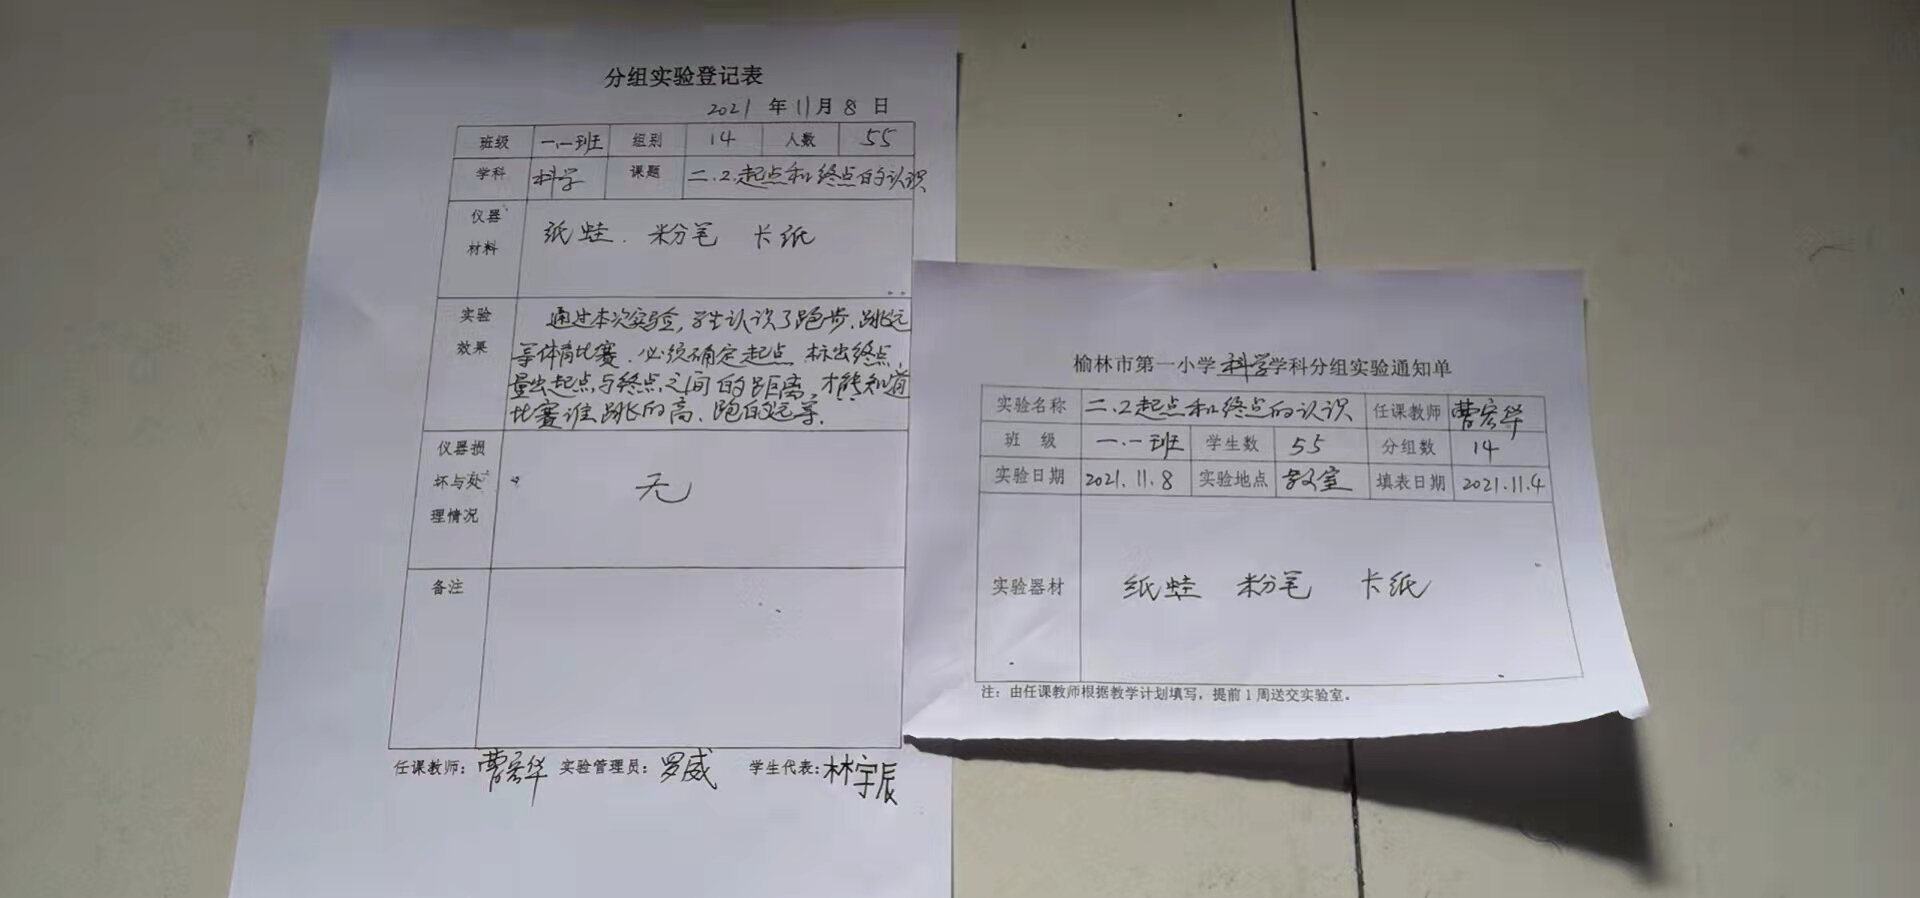 分组实验登记表
2021 年 11 月 8 日
班级 一.一班 组别 14 人数 55
学科 科学 课题 二.2.起点和终点的认识
仪器
材料
纸蛙. 粉笔 卡纸
实验
效果
通过本次实验,学生认识了跑步、跳远
等体育比赛.必须确定起点 标出终点,
量出起点与终点之间的距离,才能知道
比赛谁跳的高、跑的远等.
仪器损
坏与处
理情况
无
备注
任课教师: 曹宏华 实验管理员: 罗威 学生代表: 林宇辰
榆林市第一小学 科学 学科分组实验通知单
实验名称 二.2起点和终点的认识 任课教师 曹宏华
班 级 一.一班 学生数 55 分组数 14
实验日期 2021.11.8 实验地点 教室 填表日期 2021.11.4
实验器材 纸蛙 粉笔 卡纸
注: 由任课教师根据教学计划填写, 提前1周送交实验室。